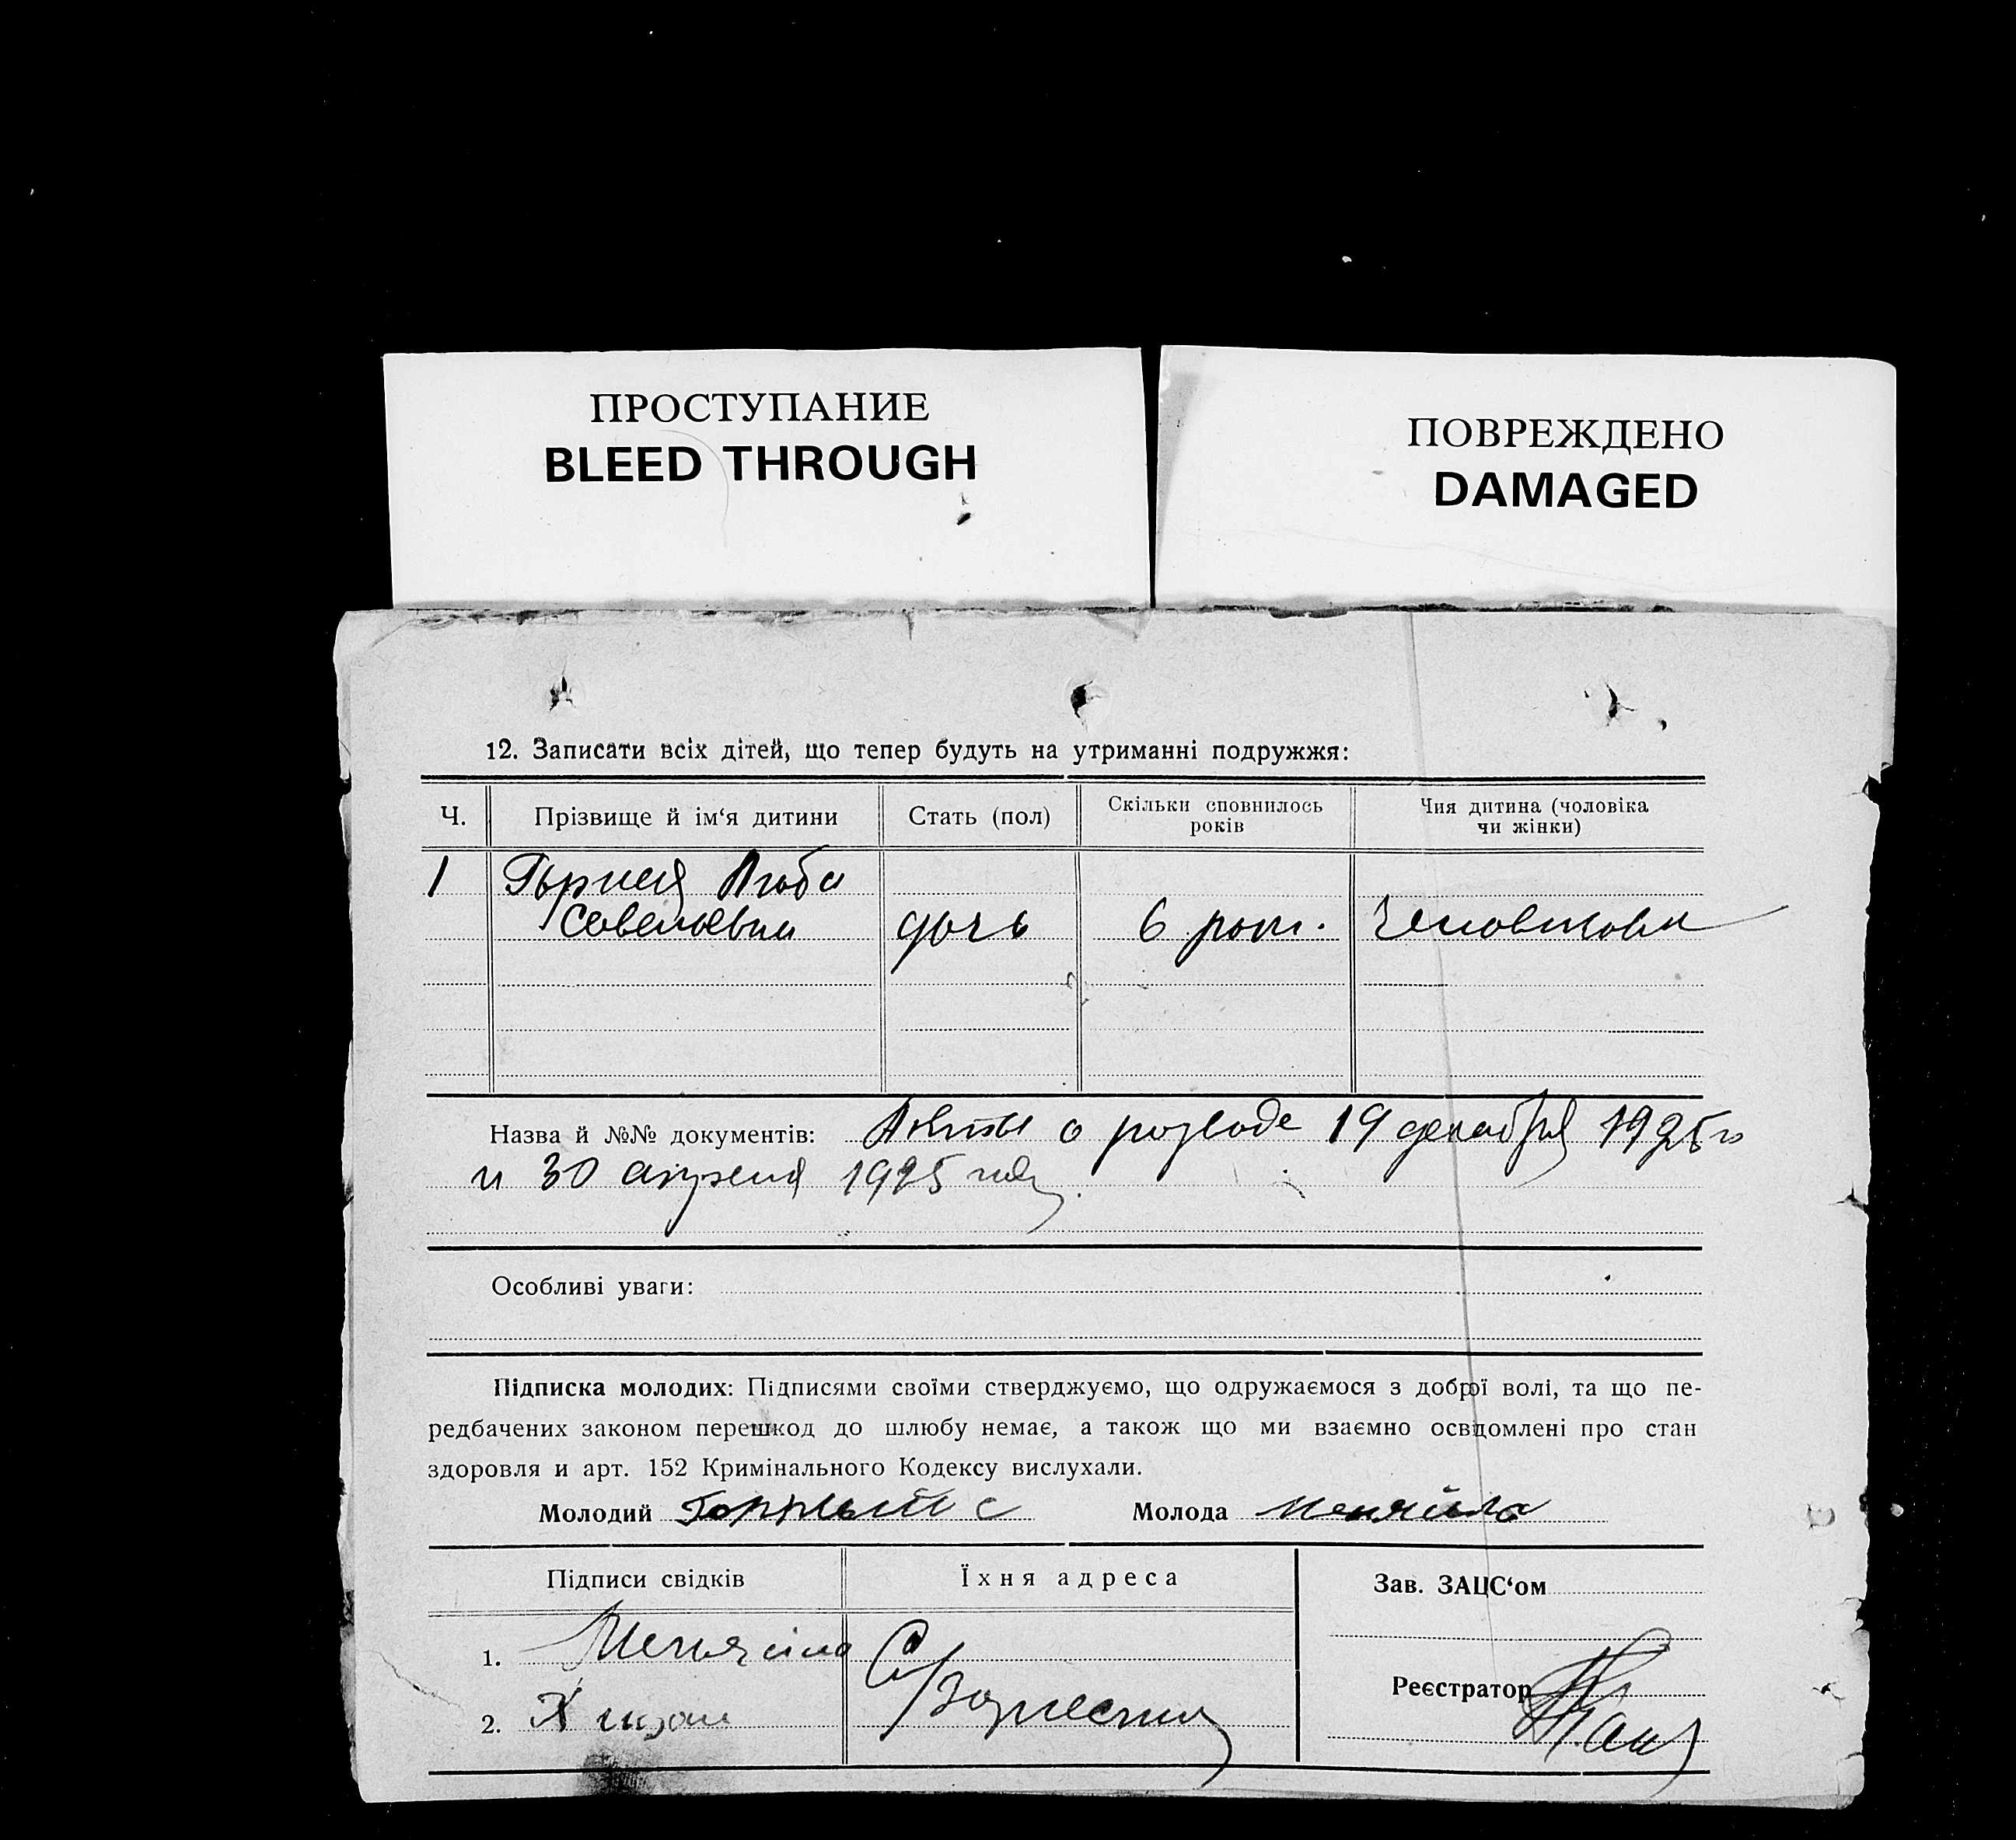 ПРОСТУПАНИЕ
BLEED THROUGH
ПОВРЕЖДЕНО
DAMAGED
12. Записати всіх дітей, що тепер будуть на утриманні подружжя:
Ч.
Прізвище й ім‘я дитини
Стать (пол)
Скільки сповнилось
років
Чия дитина (чоловіка
чи жінки)
1 Люба
Савельевна дочь 6 рок. Человікова
Назва й №№ документів: Акты о розводе 19 декабря 1925 г
и 30 апреля 1925 году.
Особливі уваги:
Підписка молодих: Підписями своїми стверджуємо, що одружаємося з доброї волі, та що пе-
редбачених законом перешкод до шлюбу немає, а також що ми взаємно освідомлені про стан
здоровля и арт. 152 Кримінального Кодексу вислухали.
Молодий Молода Меняйло
Підписи свідків
Їхня адреса
Зав. ЗАЦС‘ом
1. Меняйло С/
2.
Реєстратор